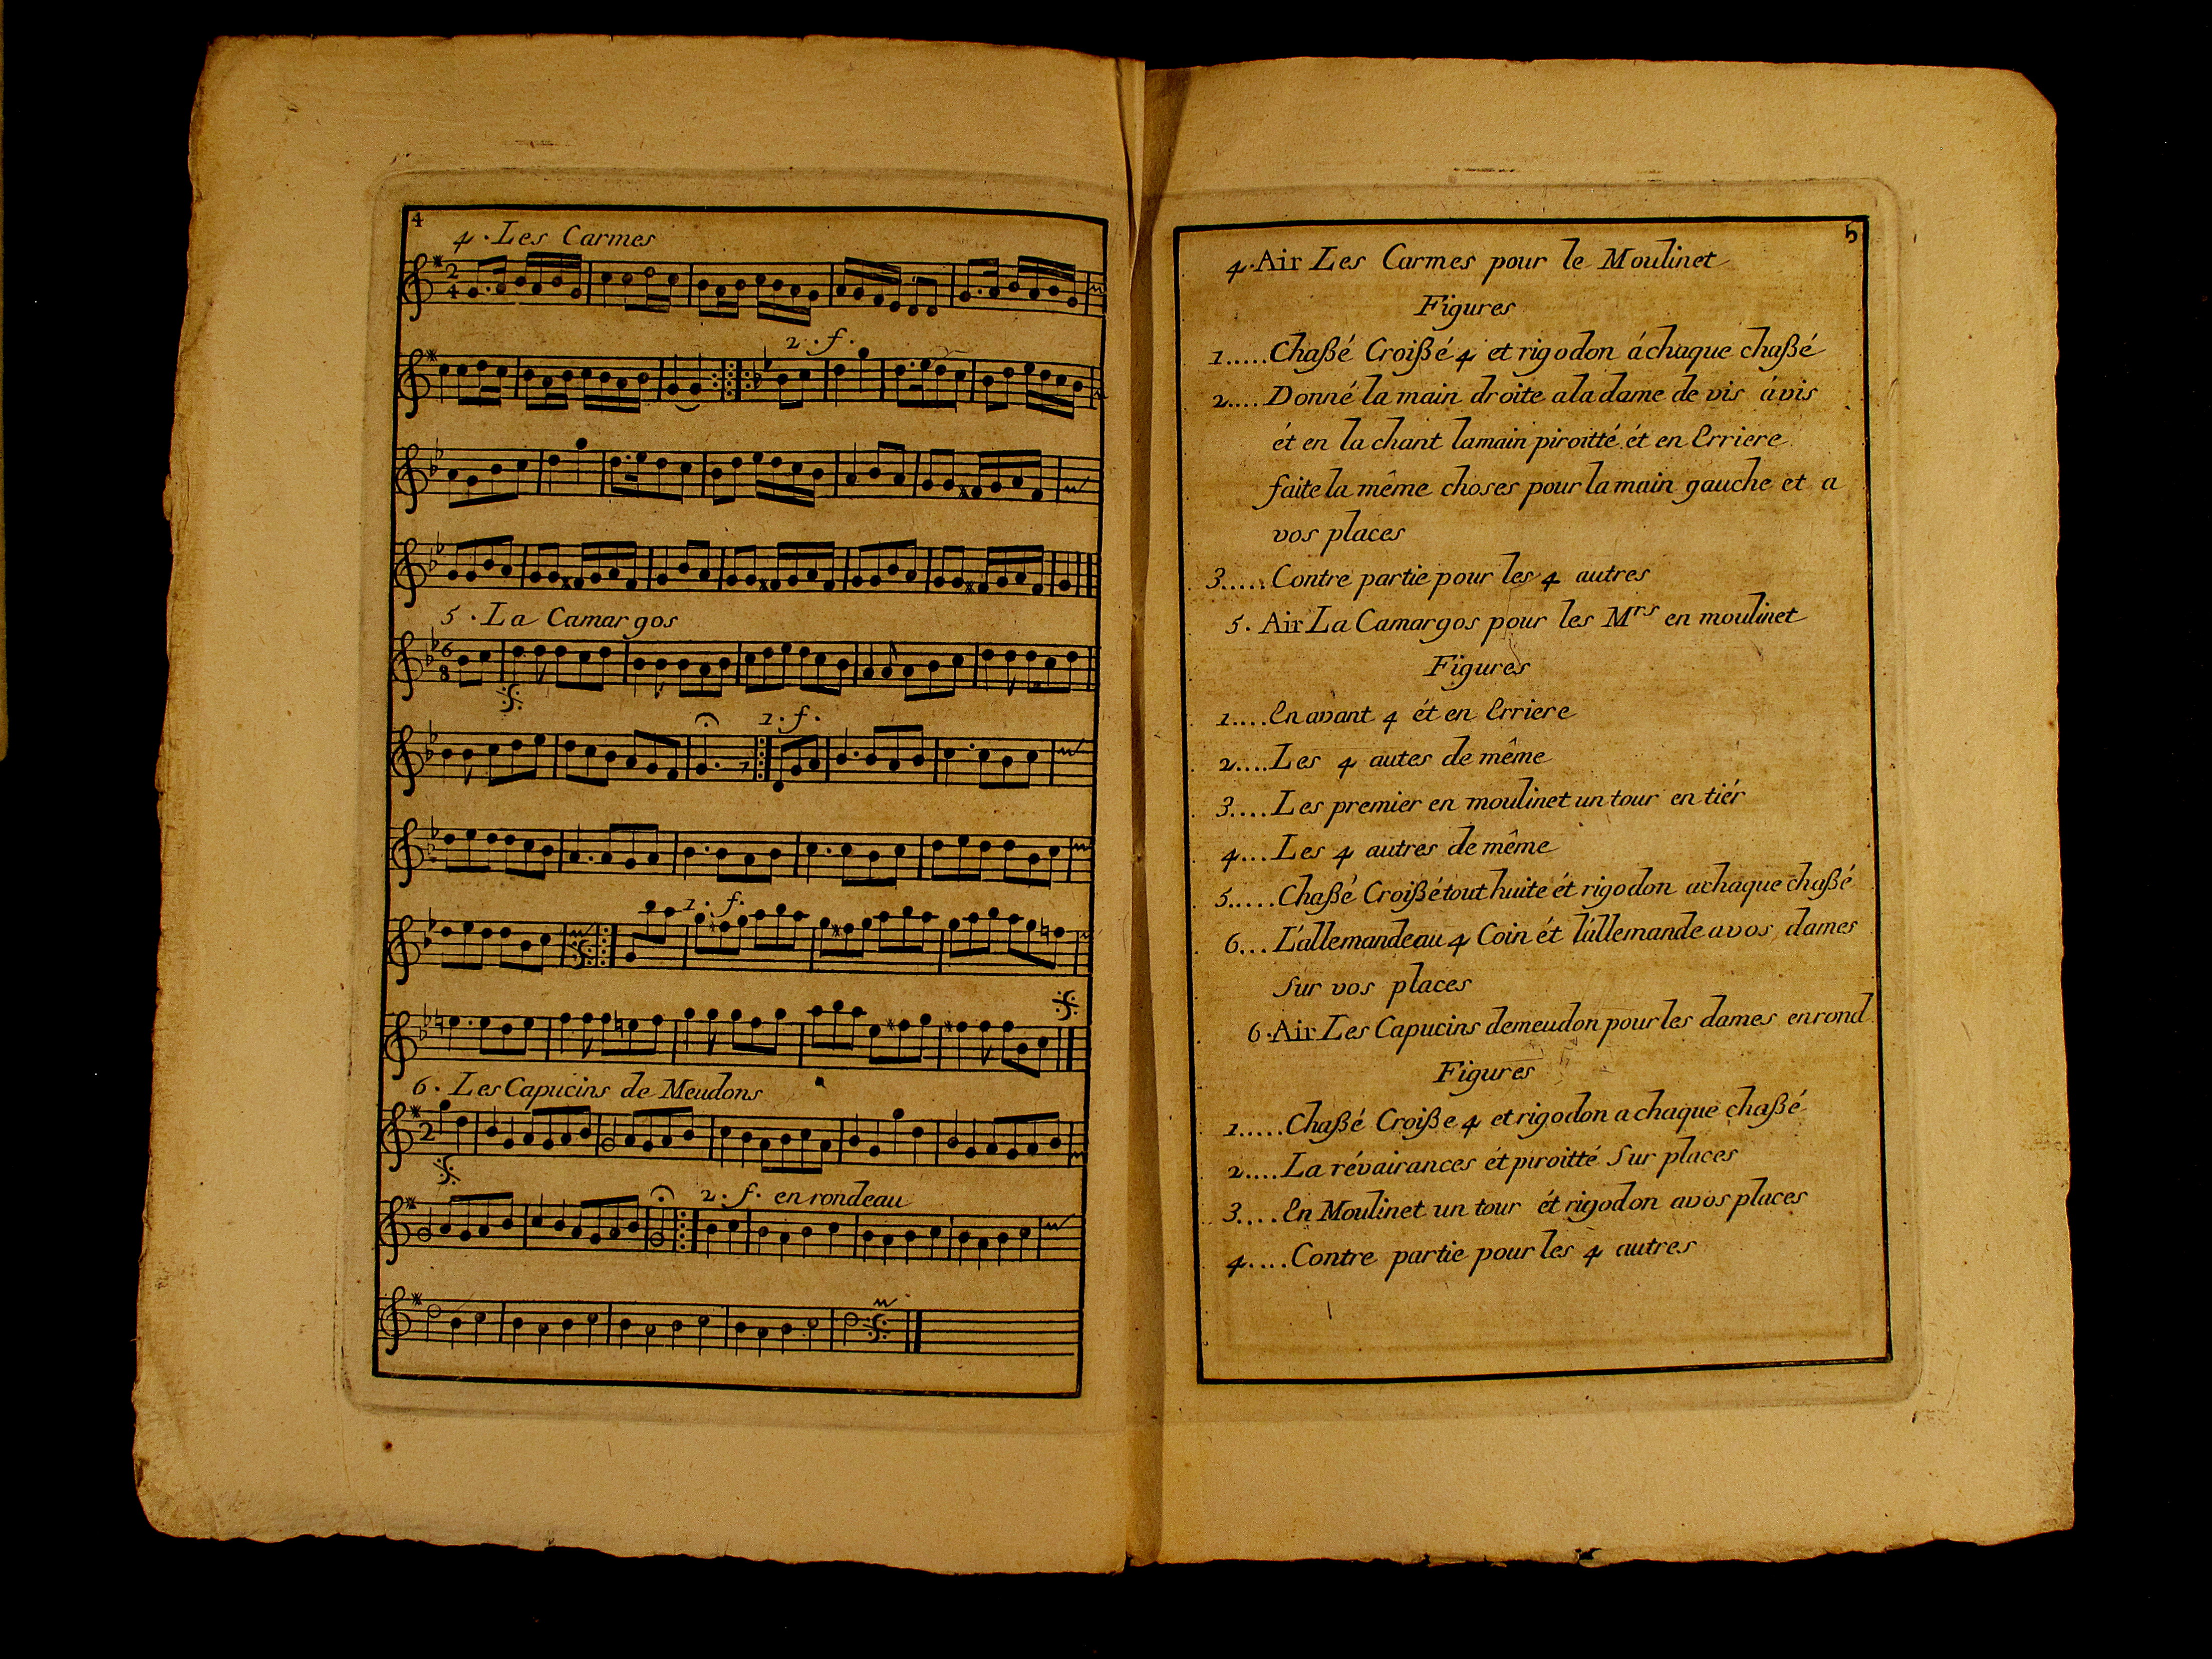 4
4. Les Carmes
2. f.
5. La Camargos
1. f.
1. f.
6. Les Capucins de Meudons
2. f. en rondeau
5
4. Air Les Carmes pour le Moulinet
Figures
1.....Chaßé Croißé 4 et rigodon áchaque chaßé
2.... Donné la main droite a la dame de vis ávis
ét en la chant lamain piroitté ét en Erriere
faite la même choses pour la main gauche et a
vos places
3..... Contre partie pour les 4 autres
5. Air La Camargos pour les Mrs en moulinet
Figures
1.... En avant 4 ét en Erriere
2.... Les 4 autes de même
3.... Les premier en moulinet un tour en tiér
4... Les 4 autres de même
5..... Chaßé Croißé tout huite ét rigodon achaque chaßé
6... L'allemande au 4 Coin ét l'allemande avos dames
Sur vos places
6. Air Les Capucins demeudon pour les dames en rond
Figures
1..... Chaßé Croiße 4 et rigodon a chaque chaßé
2.... La révairances ét piroitté Sur places
3.... En Moulinet un tour ét rigodon avos places
4.... Contre partie pour les 4 autres